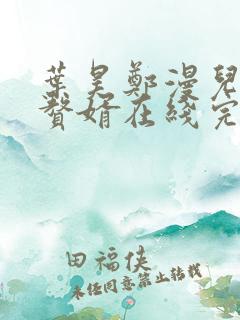 葉昊鄭漫兒
贅婿在綫完
田福俠
未經同意禁止轉載